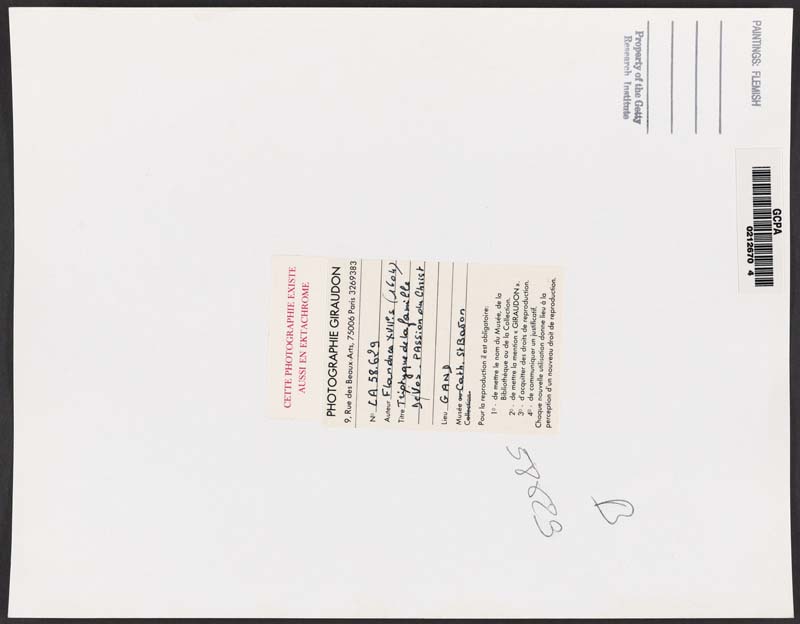 PAINTINGS: FLEMISH
Property of the Getty
Research Institute
GCPA
0212670 4
CETTE PHOTOGRAPHIE EXISTE
AUSSI EN EKTACHROME
PHOTOGRAPHIE GIRAUDON
9, Rue des Beaux-Arts, 75006 Paris 3269383
N° LA 58.629
Auteur Flandres XVII°s (1604)
Titre Triptyque de la famille
De Vos - Passion du Christ
Lieu GAND
Musée ou Cath. St Bavon
Collection
Pour la reproduction il est obligatoire:
1° - de mettre le nom du Musée, de la
Bibliothèque ou de la Collection.
2° - de mettre la mention « GIRAUDON ».
3° - d'acquitter des droits de reproduction.
4° - de communiquer un justificatif.
Chaque nouvelle utilisation donne lieu à la
perception d'un nouveau droit de reproduction.
58629